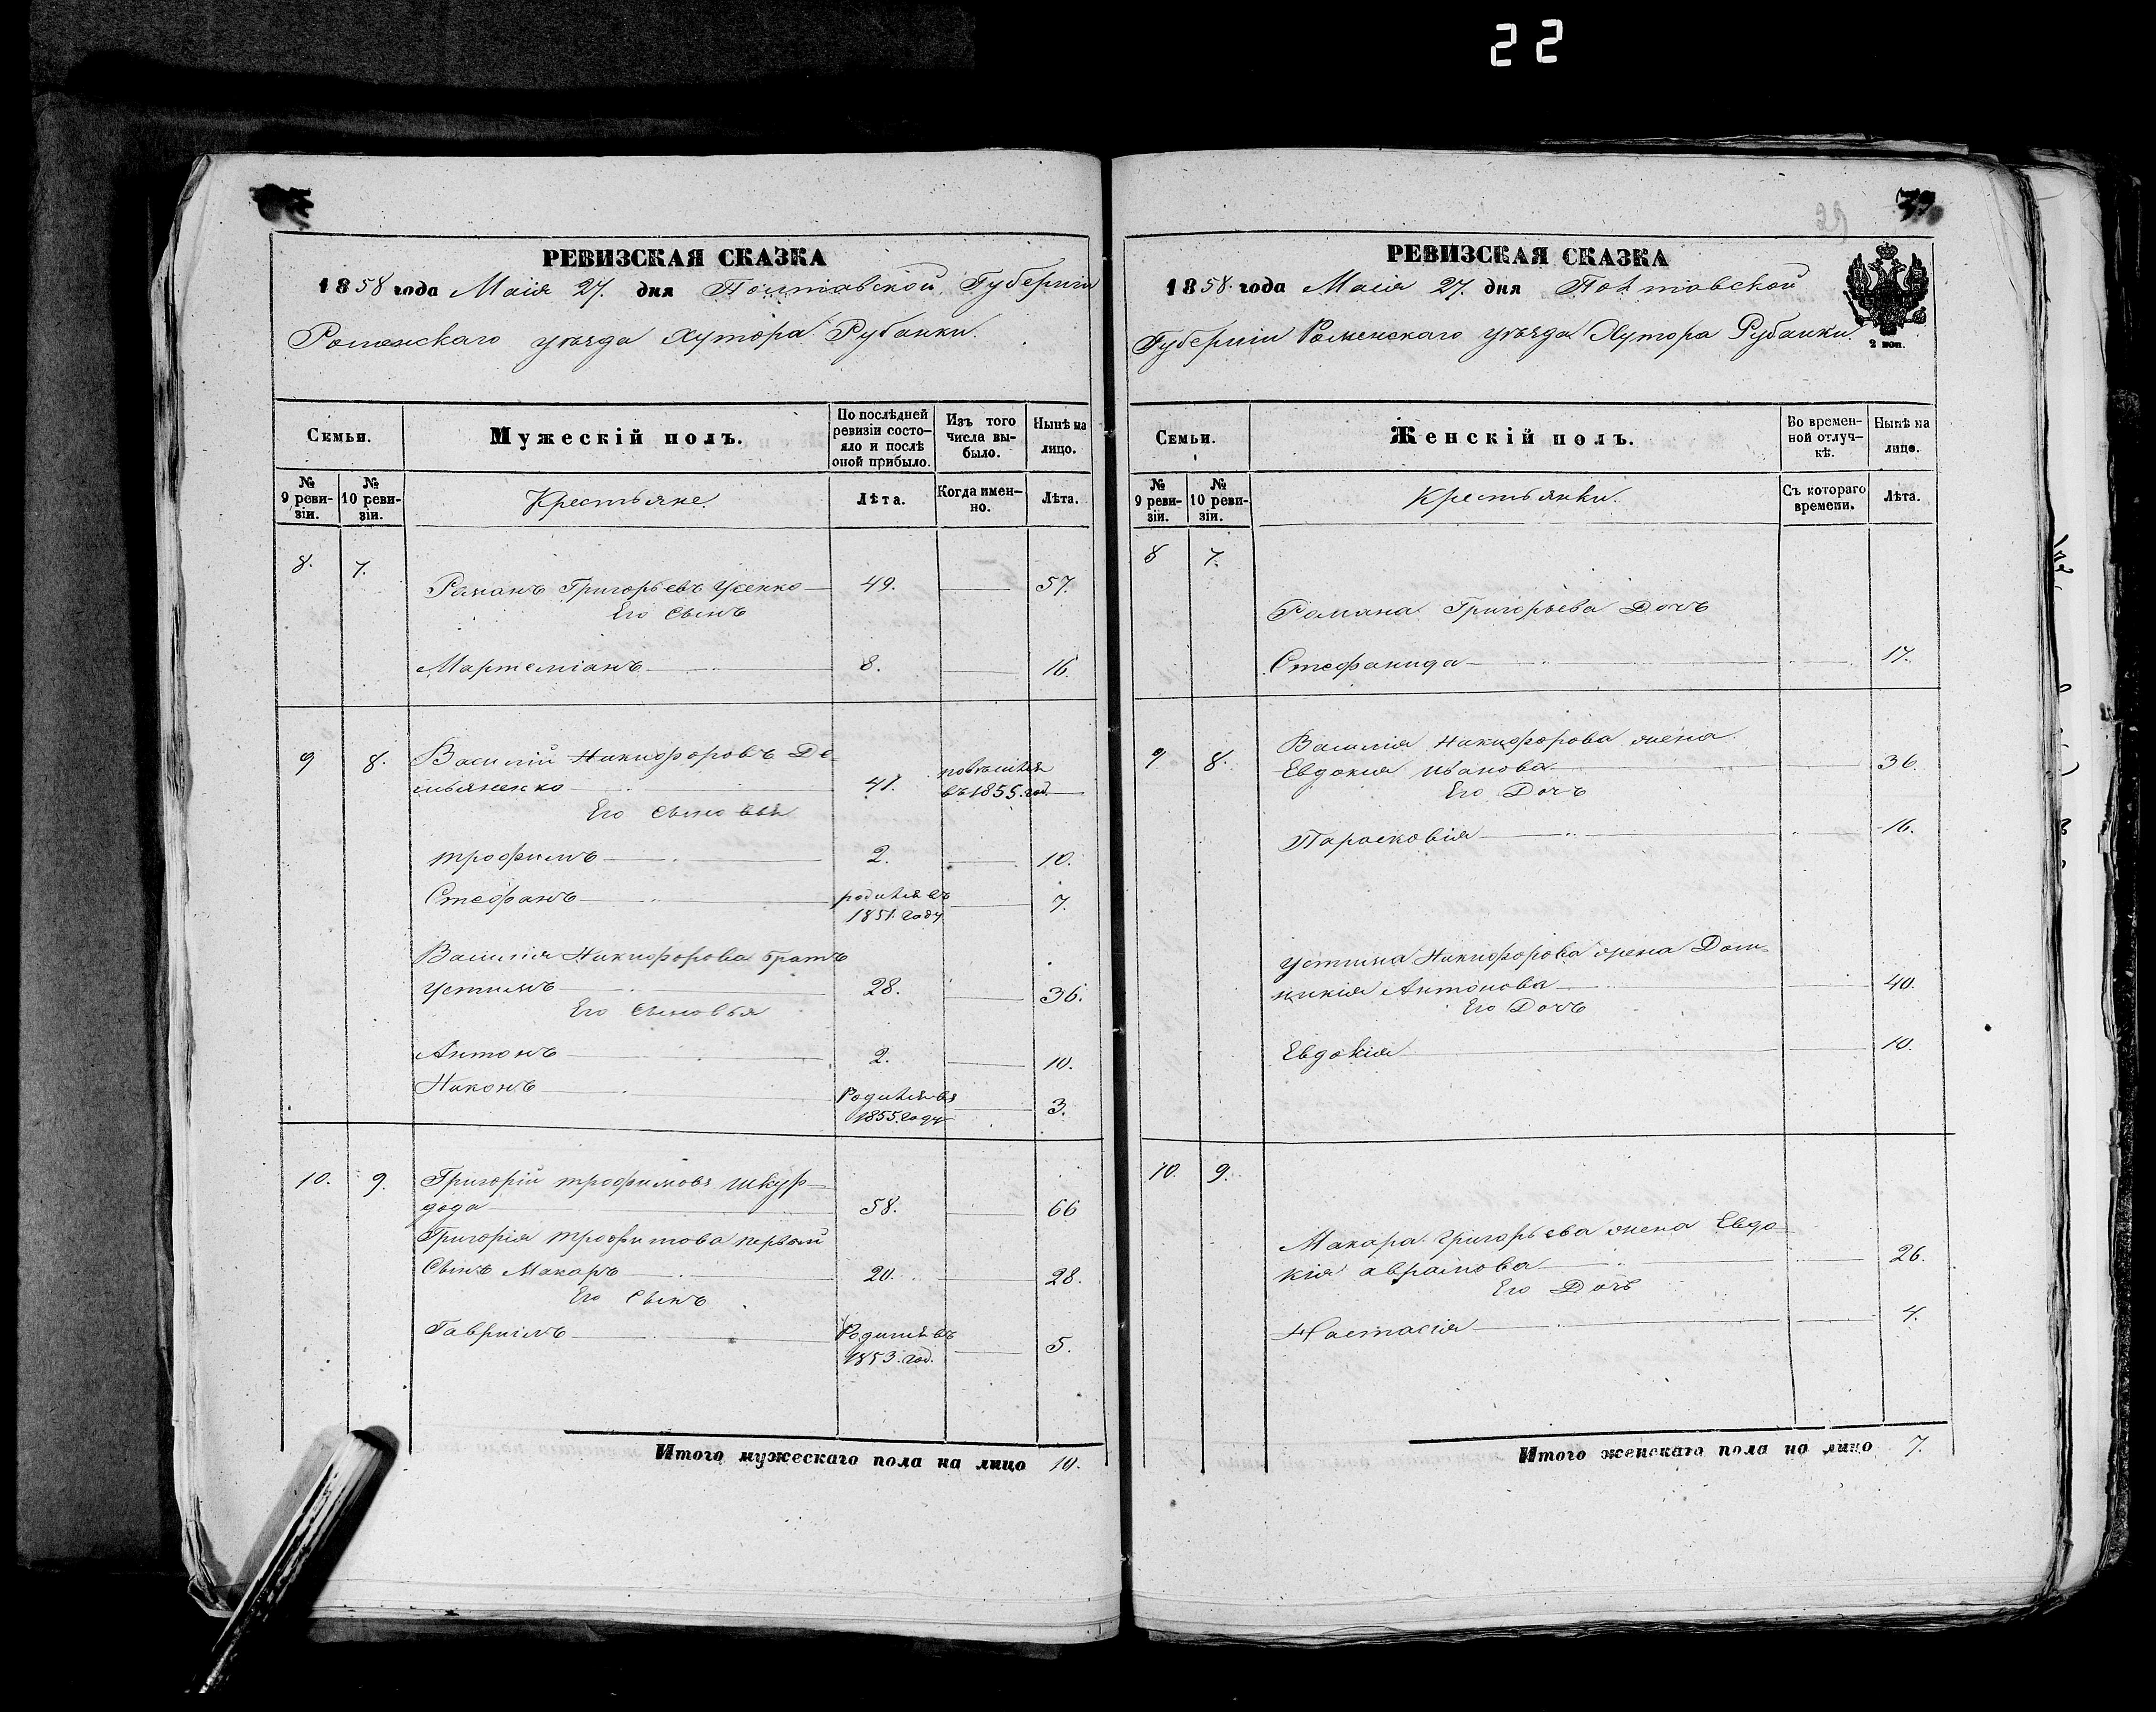 22
РЕВИЗСКАЯ СКАЗКА
1858 года Маія 27. дня Полтавской Губерніи
Роменскаго уѣзда Хутора Рубанки.
Семьи.
Мужескій полъ.
По послѣдней ревизіи состояло и послѣ оной прибыло.
Изъ того числа выбыло.
Нынѣ на лицо.
№ 9 ревизіи.
№ 10 ревизіи.
Крестьяне
Лѣта.
Когда именно.
Лѣта.
8. 7.
Романъ Григорьевъ Усенко 49. 57.
Его Сынъ
Мартеміанъ 8. 16.
9 8. Василій Никифоровъ Де-
мьяненко 47. въ 1855. год.
Его сыновья
Трофимъ 2. 10.
Стефанъ родился въ 7.
1851. году
Василія Никифорова братъ
Устимъ 28. 36.
Его сыновья
Антонъ 2. 10.
Никонъ Родился въ 3.
1855. году
10. 9. Григорій Трофимовъ Шкур-
дода 58. 66
Григорія Трофимова первый
Сынъ Макаръ 20. 28.
Его Сынъ
Гавріилъ Родился въ 5.
1853. год.
Итого мужескаго пола на лицо 10.
39
РЕВИЗСКАЯ СКАЗКА
1858. года Маія 27. дня Полтавской
Губерніи Роменскаго уѣзда Хутора Рубанки.
2 коп.
Семьи.
Женскій полъ.
Во временной отлучкѣ.
Нынѣ на лицо.
№ 9 ревизіи.
№ 10 ревизіи.
Крестьянки.
Съ котораго времени.
Лѣта.
8 7.
Романа Григорьева Дочь
Стефанида 17.
9 8. Василія Никифорова жена
Евдокія Иванова 36.
Его Дочь
Парасковія 16.
Устима Никифорова жена Дом-
никія Антонова 40.
Его Дочь
Евдокія 10.
10. 9.
Макара Григорьева жена Евдо-
кія Аврамова 26.
Его Дочь
Настасія 4.
Итого женскаго пола на лицо 7.